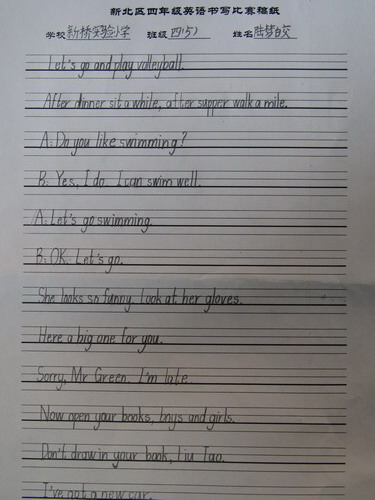 新北区四年级英语书写比赛稿纸
学校 新桥实验小学 班级 四(5) 姓名 陆梦皎
Let's go and play volleyball.
After dinner sit a while, after supper walk a mile.
A: Do you like swimming?
B: Yes, I do. I can swim well.
A: Let's go swimming.
B: OK. Let's go.
She looks so funny. Look at her gloves.
Here a big one for you.
Sorry, Mr Green. I'm late.
Now open your books, boys and girls.
Don't draw in your book, Liu Tao.
I've got a new car.